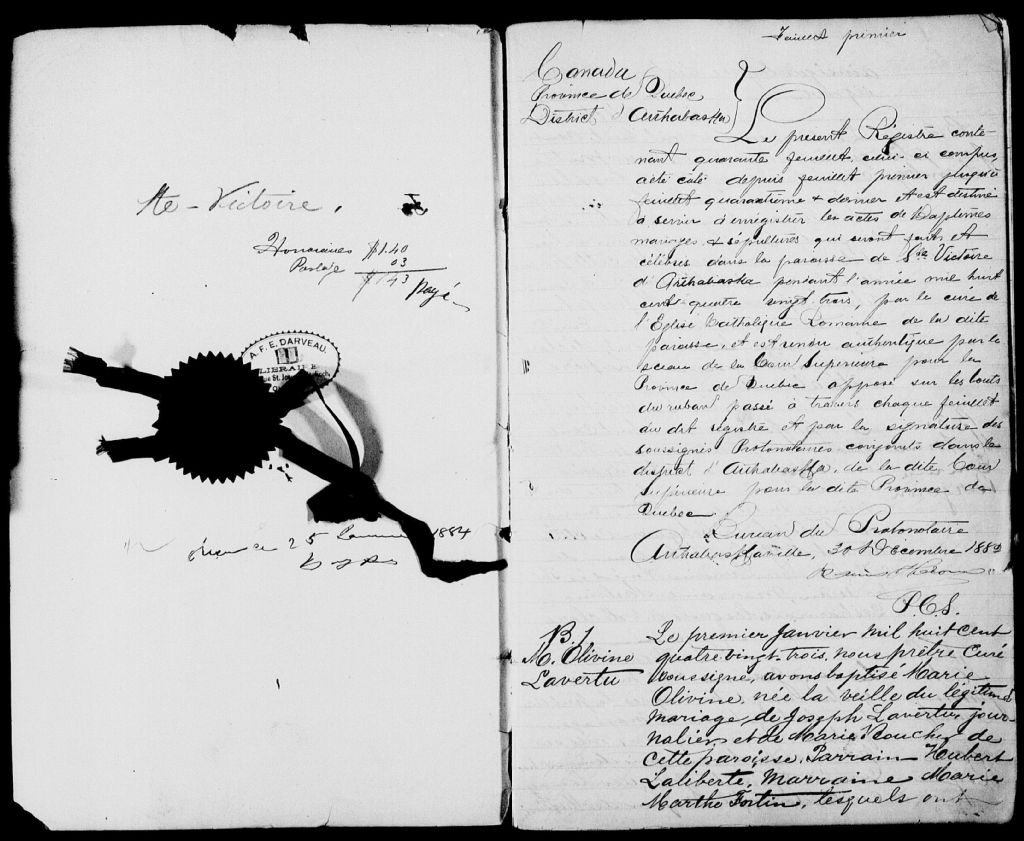 Ste-Victoire.
Honoraires $1.40
Postage 03
$1.43 payé
A. F. E. DARVEAU.
LIBRAIRE
Rue St. Jos
ce 25 1884
Feuillet premier
Canada
Province de Quebec
District d'Arthabaska
Le present Régistre conte-
nant quarante feuillets, celui-ci compris,
coté depuis feuillet premier jusqu'à
feuillet quarantième & dernier et est destiné
à servir à enregistrer les actes de Baptêmes
mariages & sépultures qui seront faits et
célébrés dans la paroisse de Ste Victoire
d'Arthabaska pendant l'année mil huit
cent quatre vingt trois, par le curé de
l'Eglise Catholique Romaine de la dite
paroisse, et est rendu authentique par le
sceau de la Cour Superieure pour la
Province de Quebec apposé sur les bouts
du ruban passé à travers chaque feuillet
du dit régistre et par la signature des
soussignés Protonotaires conjoints dans le
district d'Arthabaska, de la dite Cour
Supérieure pour la dite Province de
Quebec.
Bureau du Protonotaire
Arthabaskaville, 30 Décembre 1882
P.C.S.
B. 1
M. Olivine
Lavertu
Le premier Janvier mil huit cent
quatre vingt-trois, nous prêtre Curé
soussigné, avons baptisé Marie
Olivine, née la veille du légitime
mariage de Joseph Lavertu, jour-
nalier, et de Marie Boucher de
cette paroisse. Parrain Hubert
Laliberté, Marraine Marie
Marthe Fortin, lesquels ont